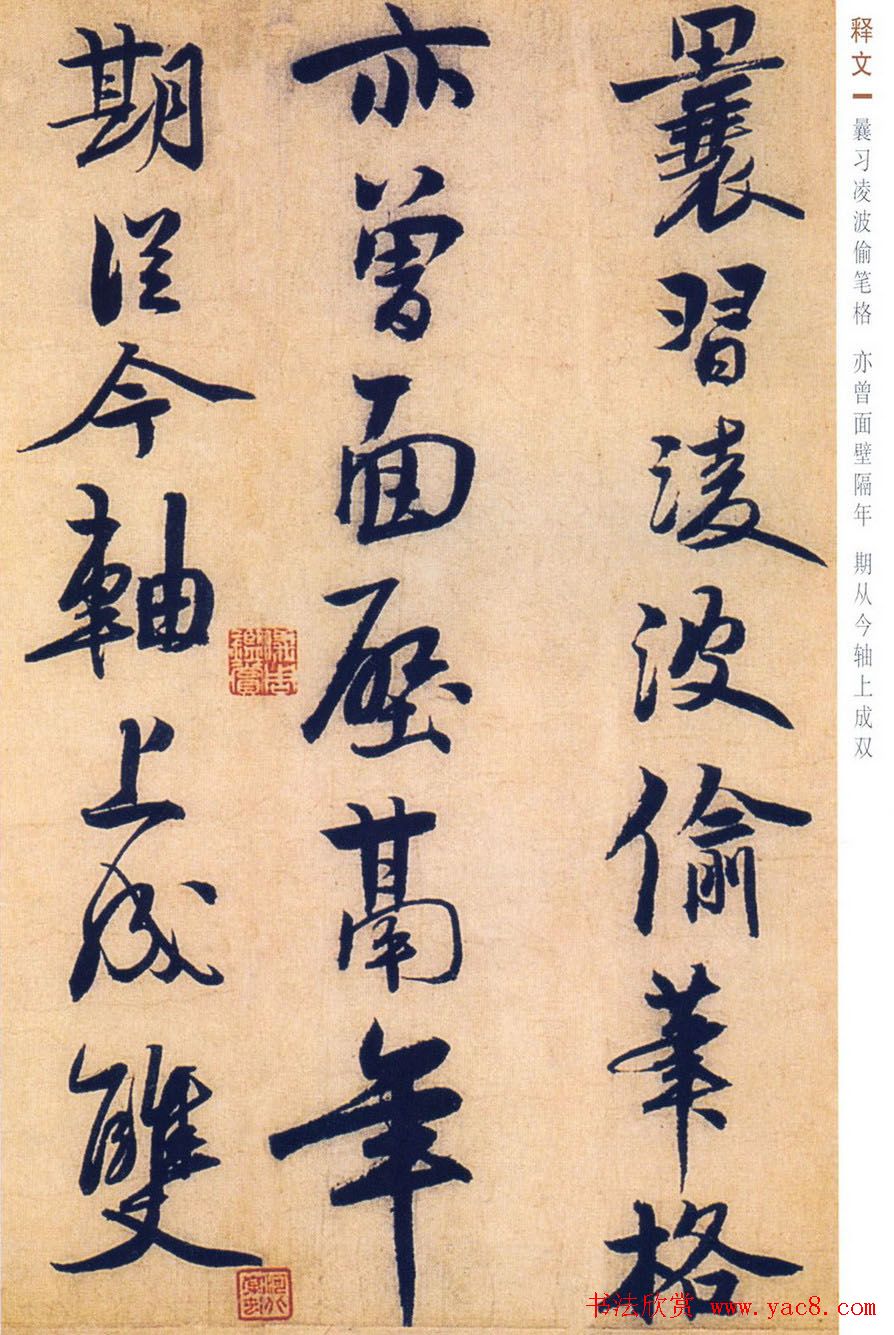 曩習淩波偷筆格
亦曾面壁鬲年
期從今軸上成雙
释文
曩习凌波偷笔格 亦曾面壁隔年 期从今轴上成双
书法欣赏 www.yac8.com